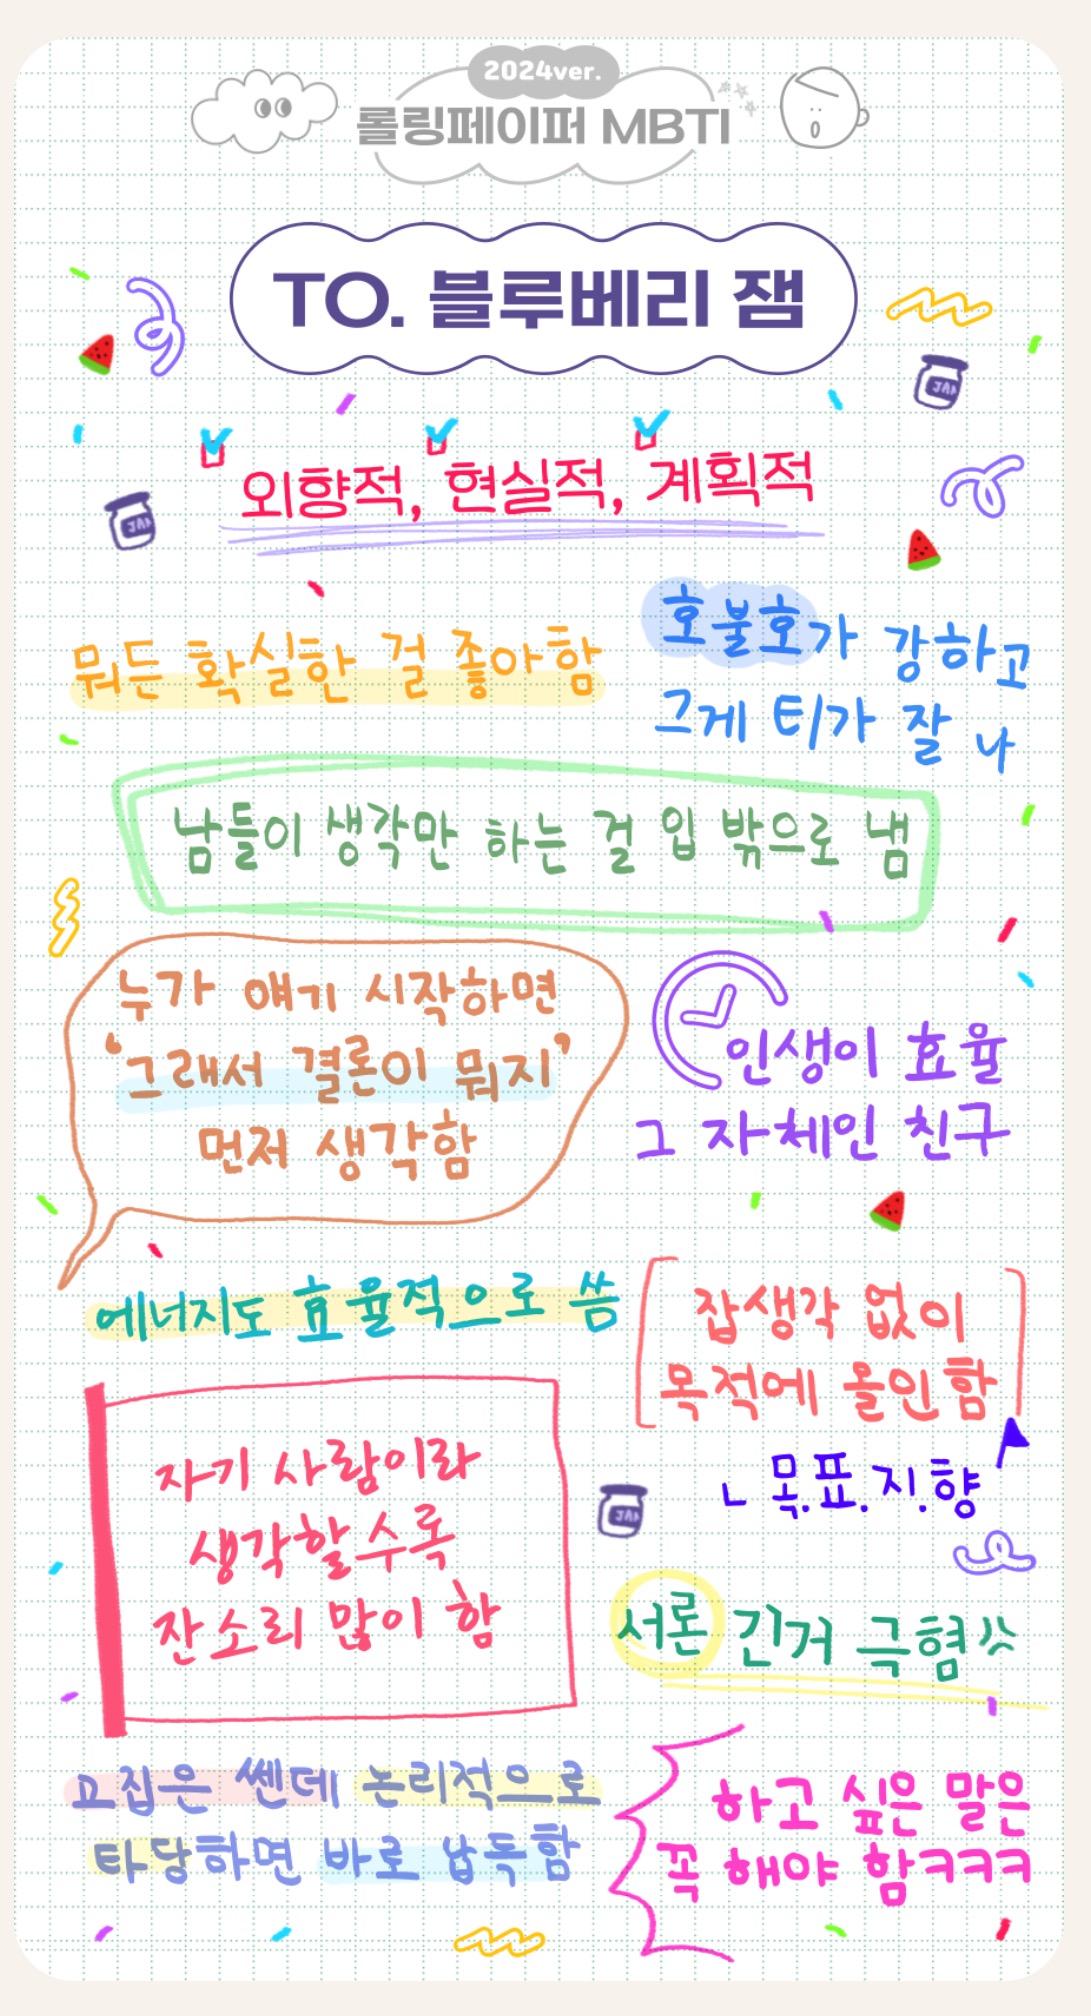 2024ver.
롤링페이퍼 MBTI
TO. 블루베리 잼
외향적, 현실적, 계획적
뭐든 확실한 걸 좋아함
호불호가 강하고
그게 티가 잘 나
남들이 생각만 하는 걸 입 밖으로 냄
누가 얘기 시작하면
'그래서 결론이 뭐지'
먼저 생각함
인생이 효율
그 자체인 친구
에너지도 효율적으로 씀
잡생각 없이
목적에 올인함
ㄴ 목.표.지.향
자기 사람이라
생각할수록
잔소리 많이 함
서론 긴거 극혐
고집은 쎈데 논리적으로
타당하면 바로 납득함
하고 싶은 말은
꼭 해야 함ㅋㅋㅋ
JAM
JAM
JAM